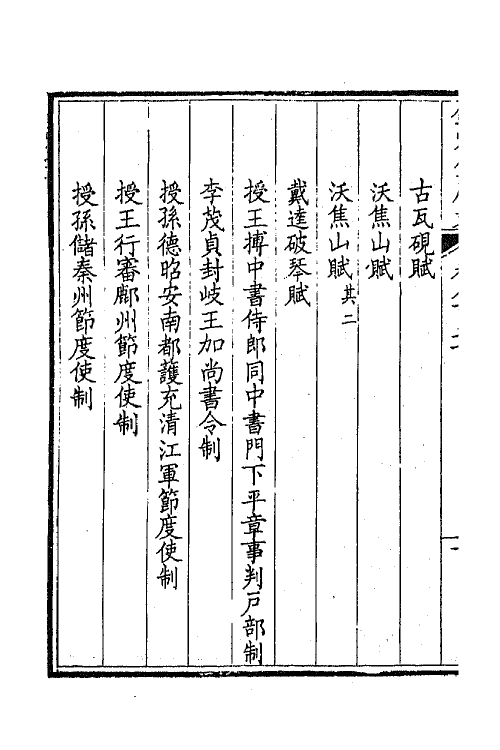 古瓦硯賦
沃焦山賦
沃焦山賦其二
戴逵破琴賦
授王摶中書侍郎同中書門下平章事判戶部制
李茂貞封岐王加尚書令制
授孫德昭安南都護充清江軍節度使制
授王行審鄜州節度使制
授孫儲秦州節度使制